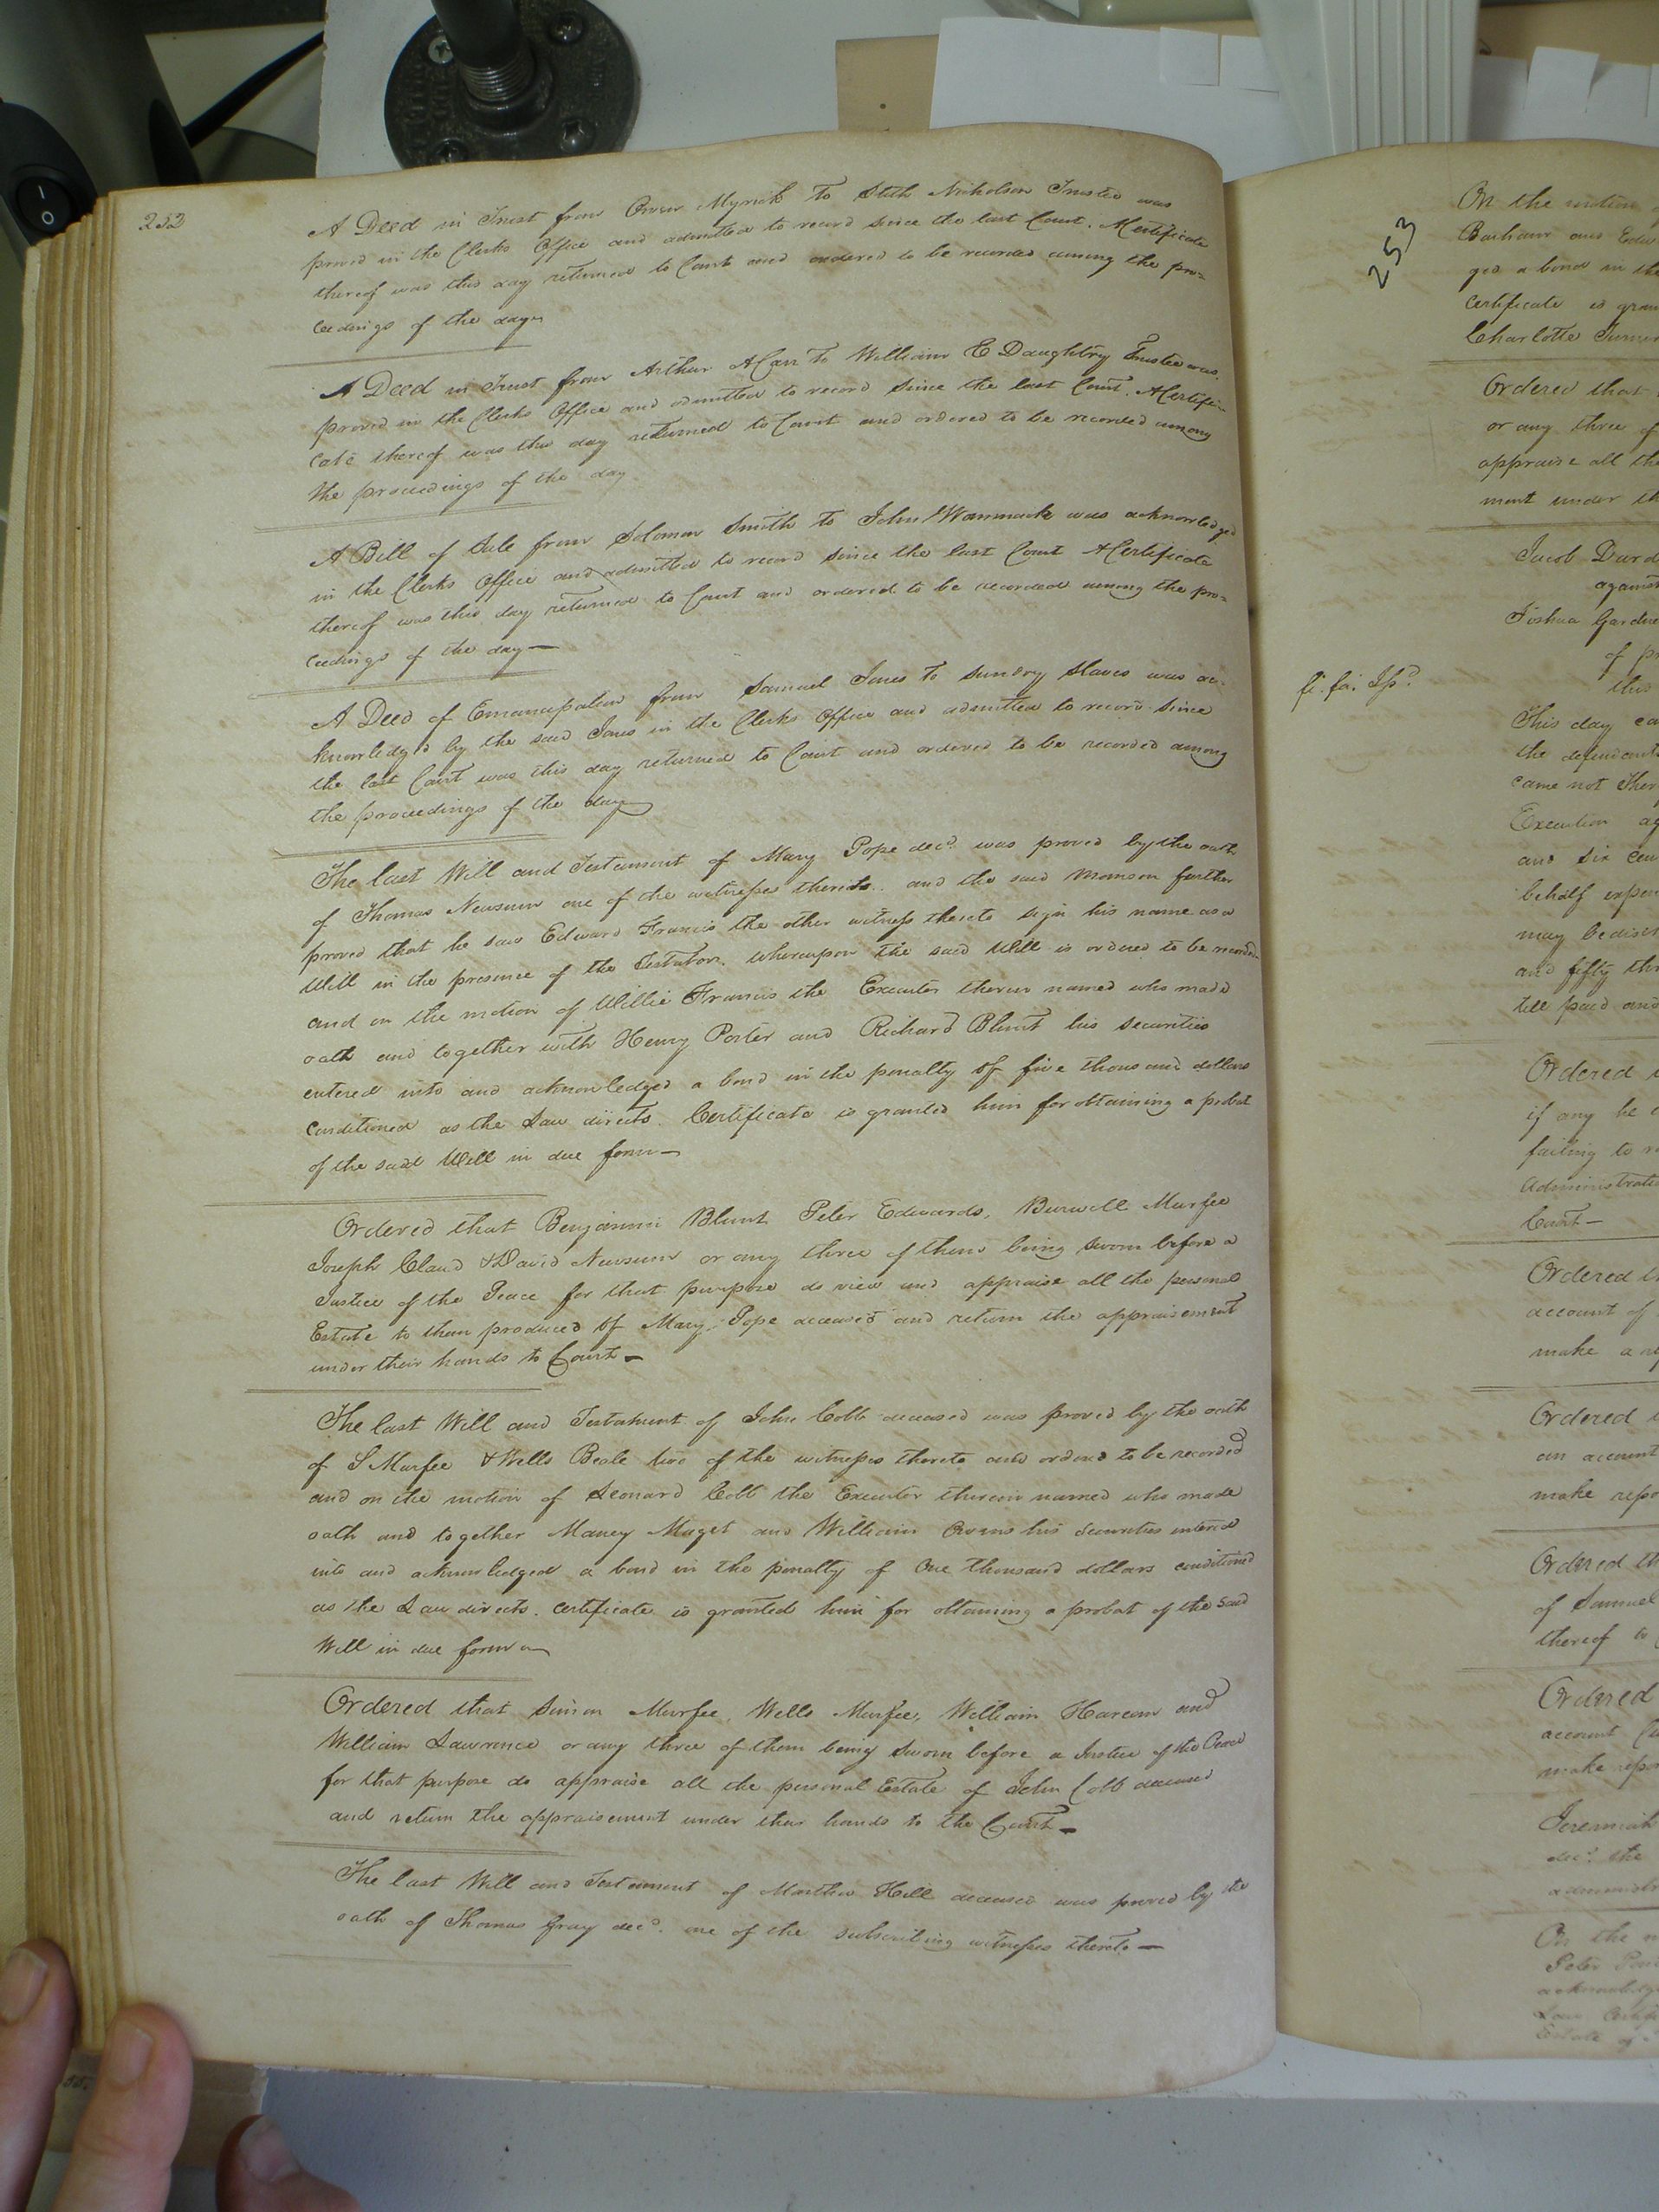 252
A Deed in Trust from Owen Myrick To Stith Nicholson Trustee was
proved in the Clerks Office and admitted to record since the last Court. A Certificate
thereof was this day returned to Court and ordered to be recorded among the pro=
ceedings of the day
A Deed in Trust from Arthur A Carr To William E Daughtry Trustee was
proved in the Clerks Office and admitted to record since the last Court. A Certifi=
cate thereof was this day returned to Court and ordered to be recorded among
the proceedings of the day
A Bill of Sale from Solomon Smith to John Wommack was acknowledged
in the Clerks Office and admitted to record since the last Court A Certificate
thereof was this day returned to Court and ordered to be recorded among the pro=
ceedings of the day
A Deed of Emancipation from Samuel Jones To Sundry Slaves was ac=
knowledged by the said Jones in the Clerks Office and admitted to record since
the last Court was this day returned to Court and ordered to be recorded among
the proceedings of the day
The last Will and Testament of Mary Pope decd. was proved by the oath
of Thomas Newsum one of the witnesses thereto.. and the said further
proved that he saw Edward Francis the other witness thereto sign his name as a
Will in the presence of the Testator. Whereupon the said Will is ordered to be recorded
and on the motion of Willie Francis the Executor therein named who made
oath and together with Henry Porter and Richard Blunt his securities
entered into and acknowledged a bond in the penalty of five thousand dollars
Conditioned as the Law directs. Certificate is granted him for obtaining a probat
of the said Will in due form
Ordered that Benjamin Blunt Peter Edwards, Burwell Murfee
Joseph Claud & David Newsum or any three of them being sworn before a
Justice of the Peace for that purpose do view and appraise all the personal
Estate to them produced of Mary Pope deceased and return the appraisement
under their hands to Court
The last Will and Testament of John Cobb deceased was proved by the oath
of S Murfee & Wells Beale two of the witnesses thereto and ordered to be recorded
and on the motion of Leonard Cobb the Executor therein named who made
oath and together Maney Maget and William Evans his securities entered
into and acknowledged a bond in the penalty of One thousand dollars conditioned
as the Law directs. Certificate is granted him for obtaining a probat of the said
Will in due form
Ordered that Simon Murfee, Wells Murfee, William Harcum and
William Lawrence or any three of them being sworn before a Justice of the Peace
for that purpose do appraise all the personal Estate of John Cobb deceased
and return the appraisement under their hands to the Court
The last Will and Testament of Matthew Hill deceased was proved by the
oath of Thomas Gray decd. one of the subscribing witnesses thereto
253
On the motion
Barham and Edw
ged a bond in the
Certificate is gran
Charlotte Turner
Ordered that
or any three of
appraise all the
ment under th
Jacob Dard
against
Joshua Gardne
of
this
fi. fa. Isd.
This day ca
the defendants
came not Ther
Execution ag
and six cen
behalf expen
may be disch
and fifty thr
till paid and
Ordered
if any be
failing to
Administrati
Court
Ordered th
account of
make a re
Ordered
an account
make repo
Ordered th
of Samuel
thereof to
Ordered
account
make repor
Jeremiah
decd. the
administr
On the m
Peter
acknowledg
Law Certif
Estate of